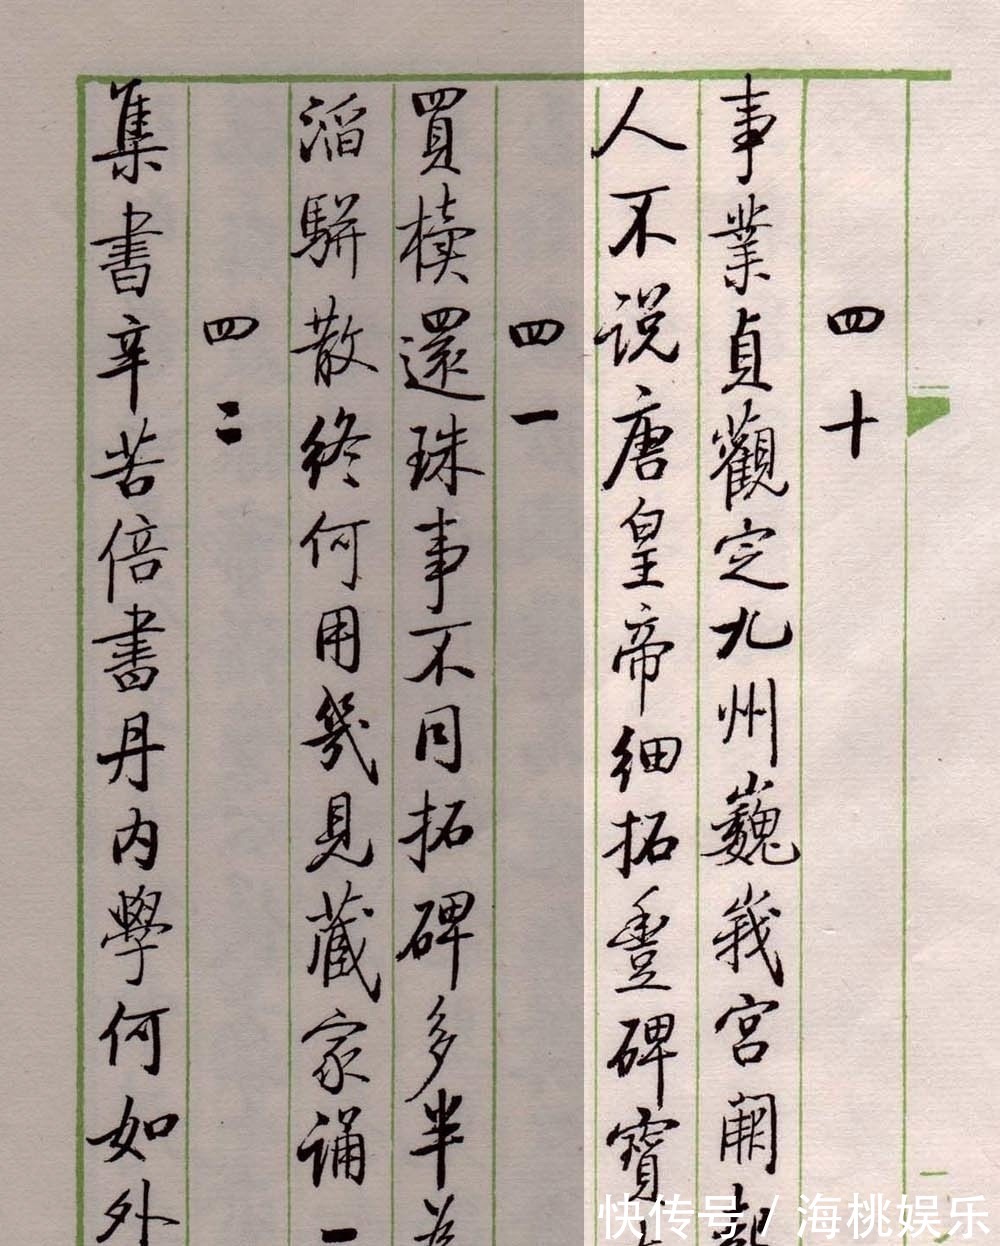 四十
事業貞觀定九州巍峩宮闕起
人不说唐皇帝细拓豐碑寶
四一
買櫝還珠事不同拓碑多半為
滔駢散終何用幾見藏家誦一
四二
集書辛苦倍書丹内學何如外
快传号/海桃娱乐